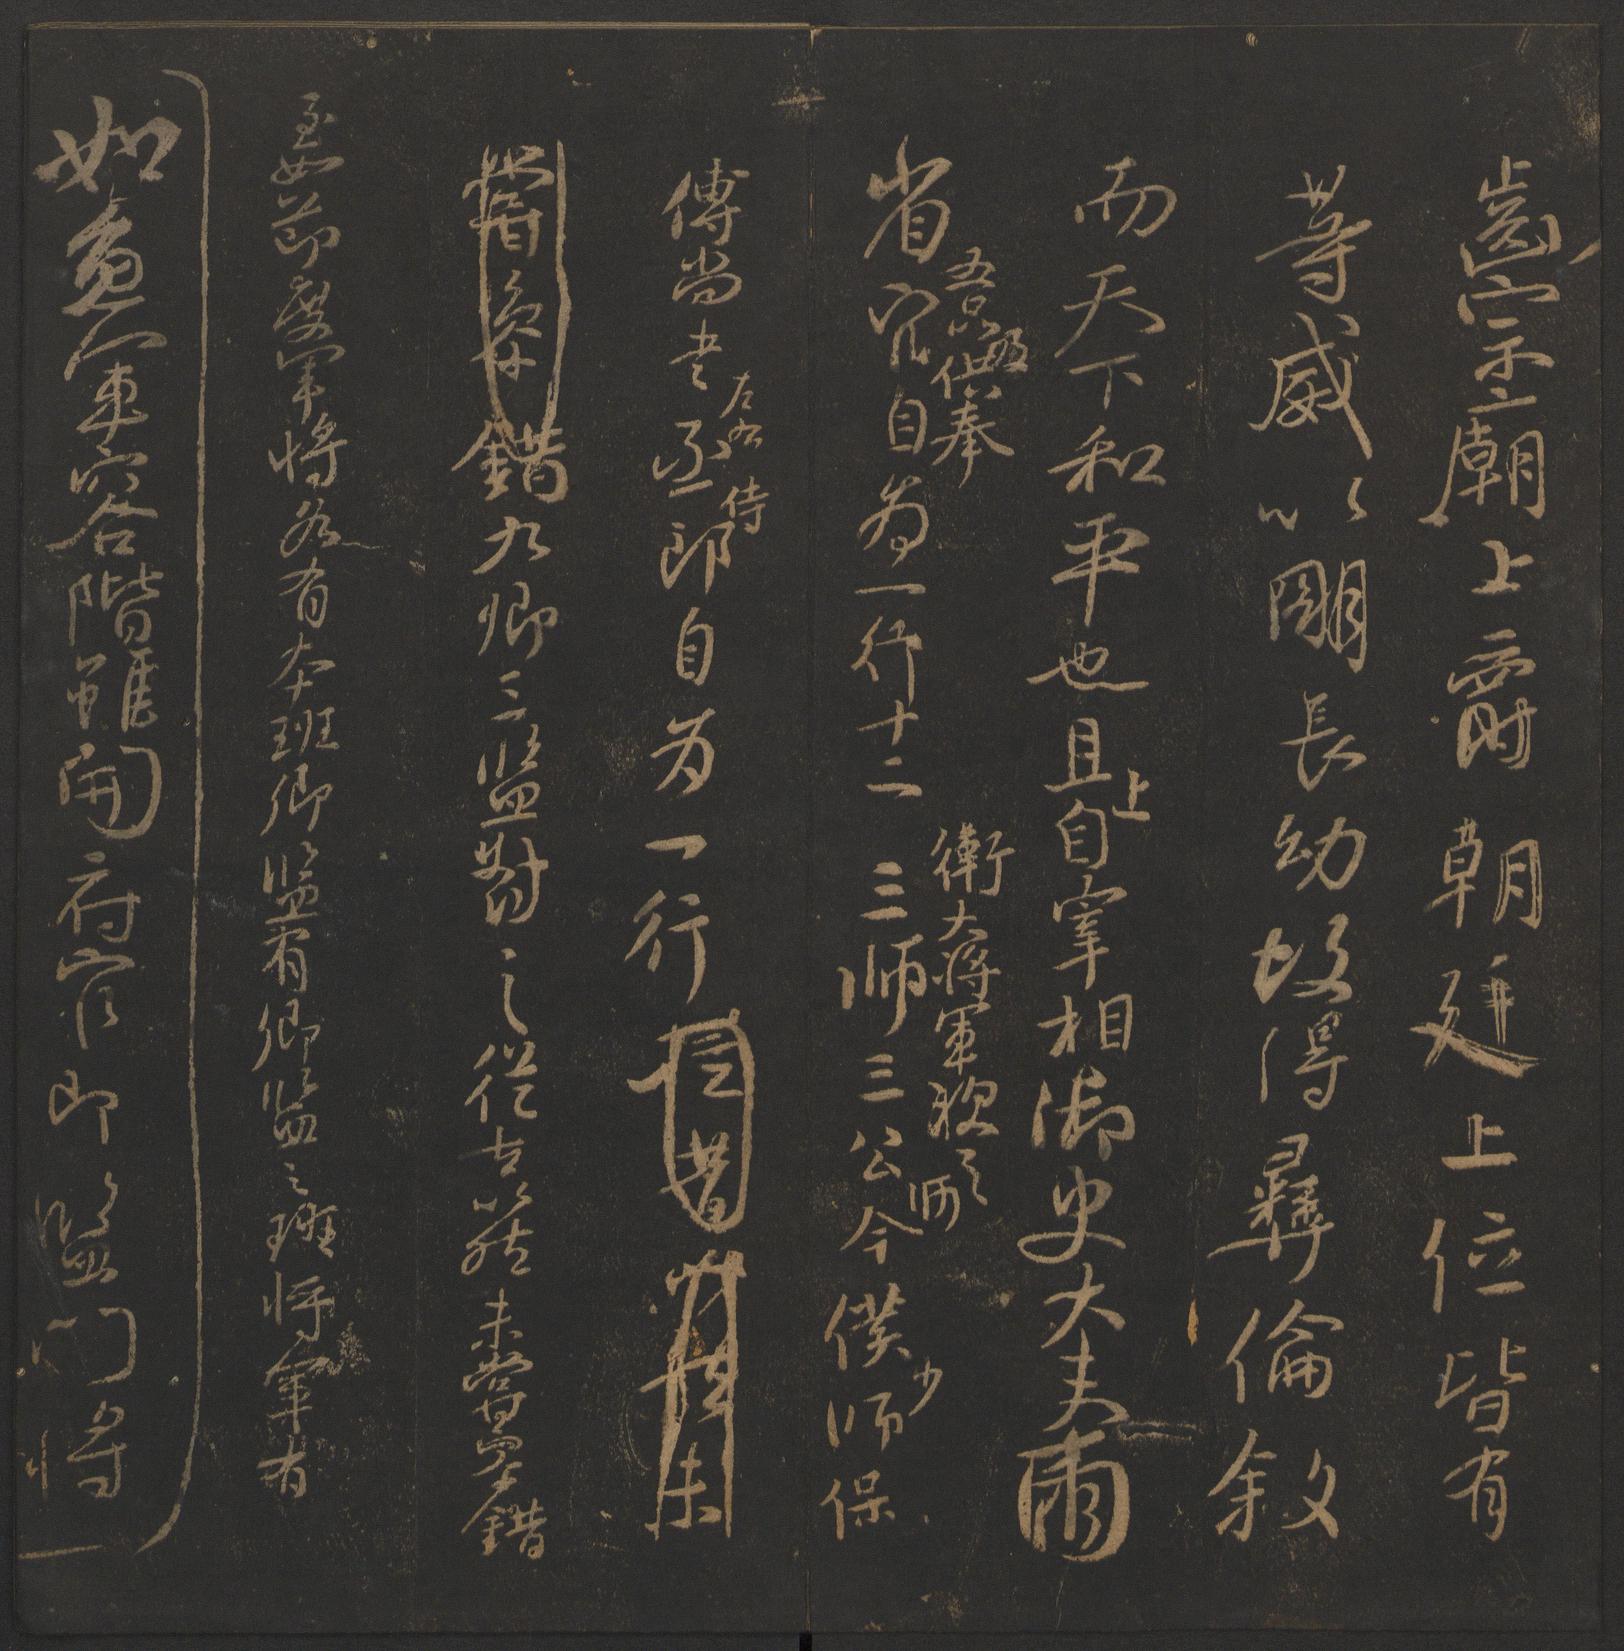 齒宗廟上爵朝廷上位皆有
等威以明長幼故得彝倫敘
而天下和平也且上自宰相御史大夫兩
省五品以上供奉官自為一行十二衛大將軍次之三師三公令僕少師保
傅尚書左右丞侍郎自為一行
錯九卿三監對之從古以然未嘗參錯
至如節度軍將各有本班卿監有卿監之班將軍有
如魚軍容階雖開府官即監門將